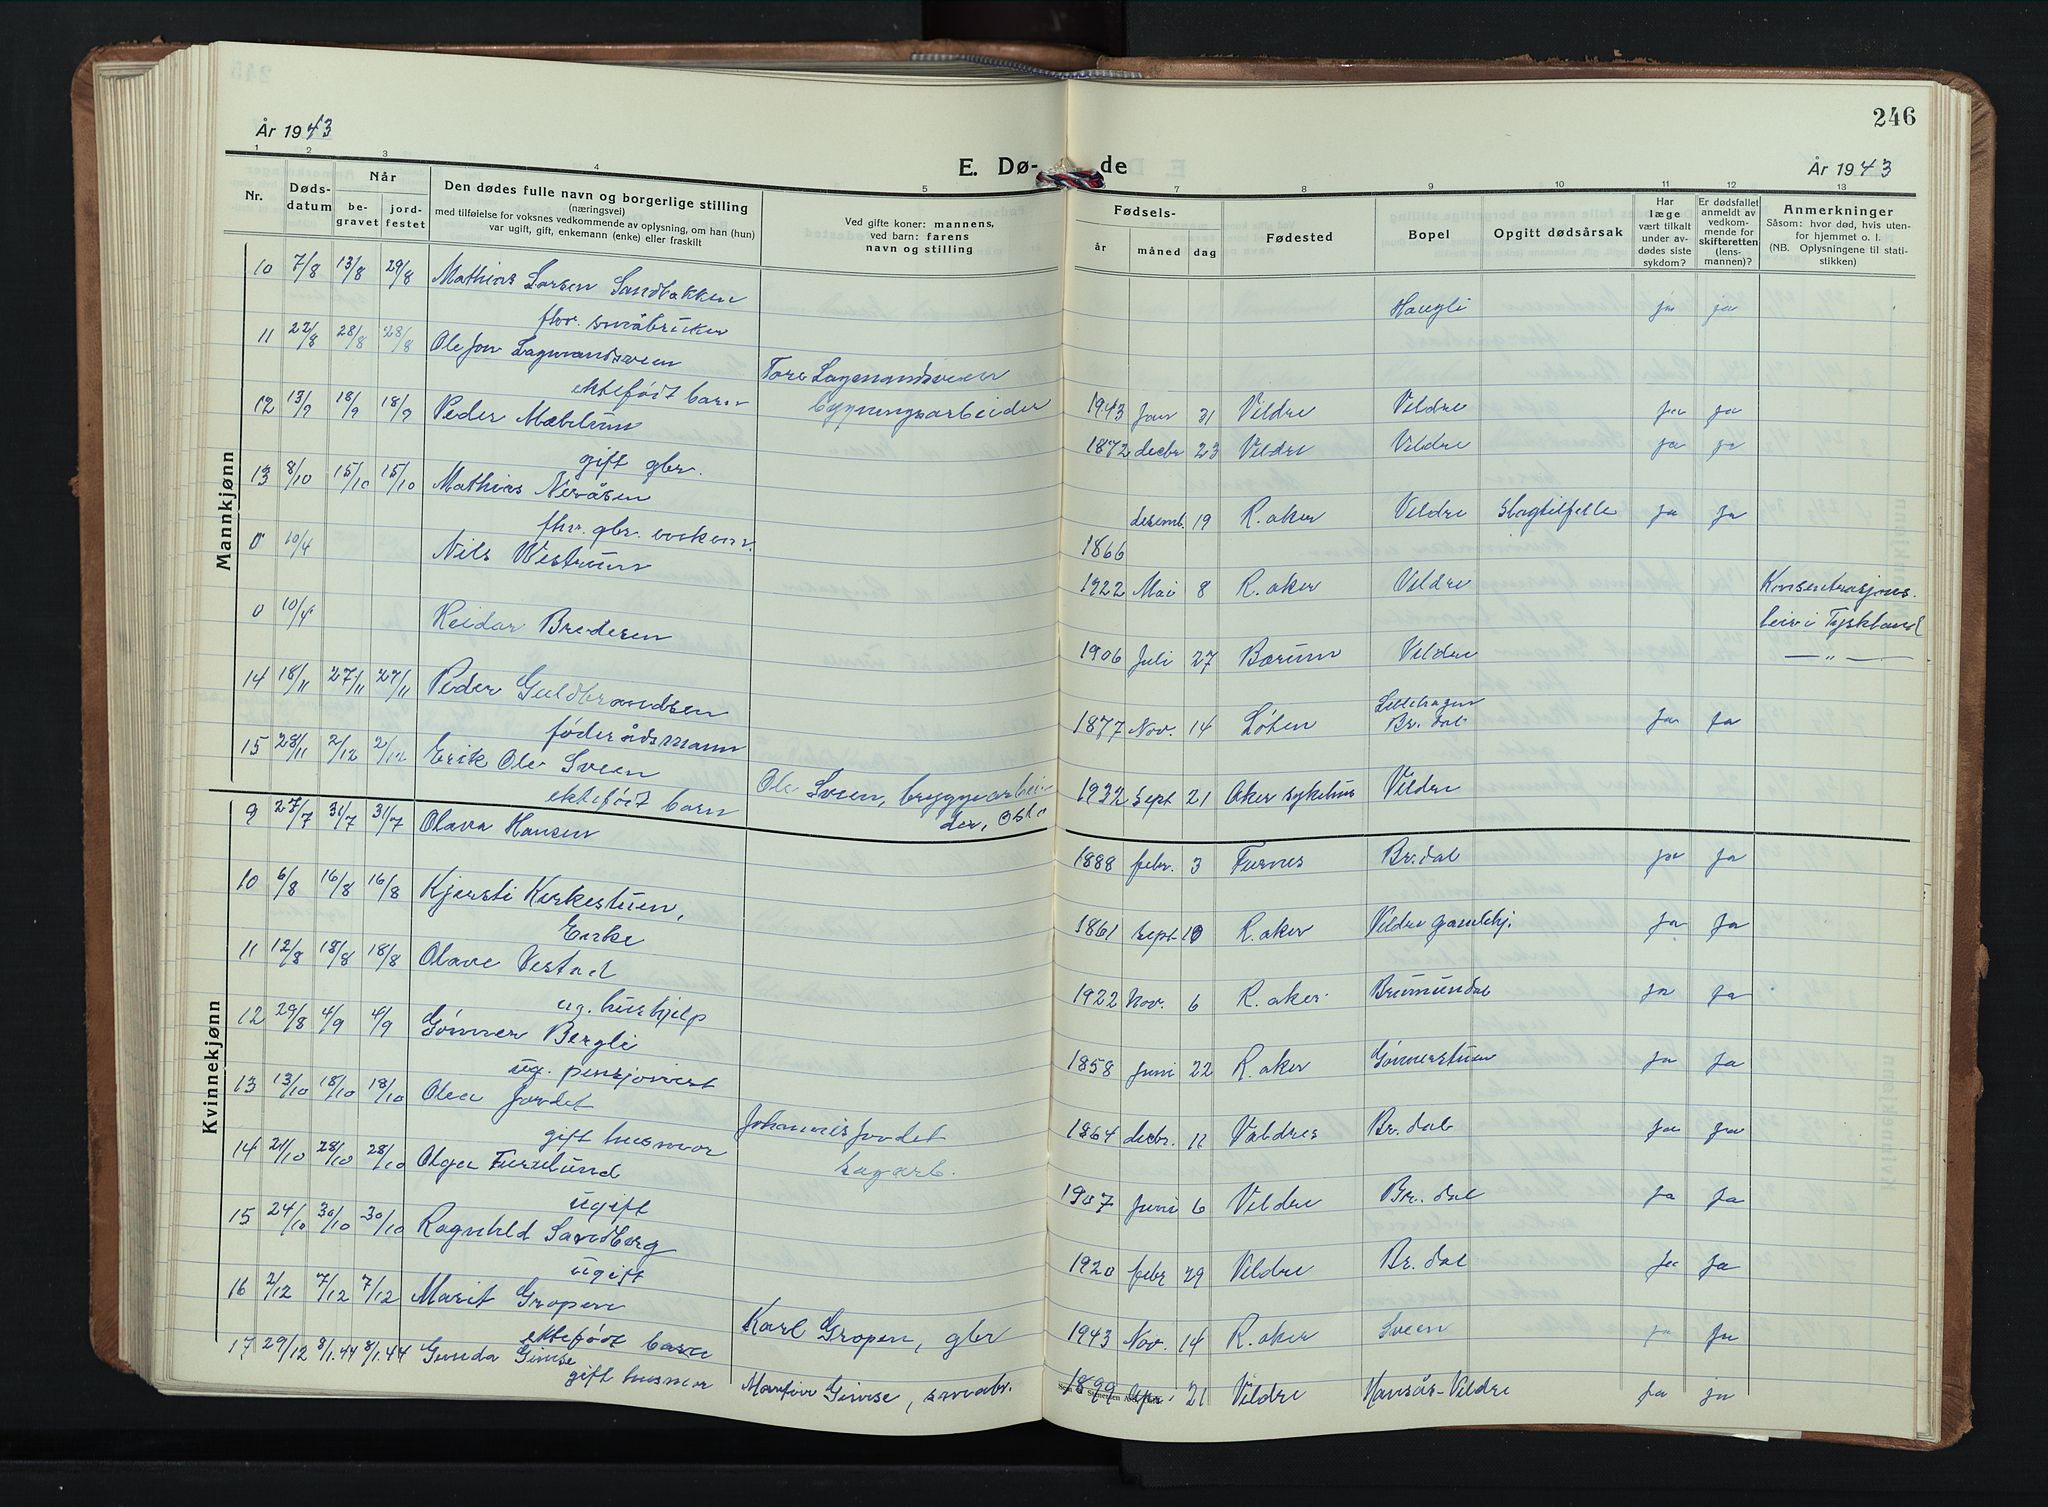 246
År 1943
E. Dø- de
År 1943
1 2 3 4 5 7 8 9 10 11 12 13
Nr.
Døds-
datum
Når
be-
gravet
jord-
festet
Den dødes fulle navn og borgerlige stilling
(næringsvei)
med tilføielse for voksnes vedkommende av oplysning, om han (hun)
var ugift, gift, enkemann (enke) eller fraskilt
Ved gifte koner: mannens,
ved barn: farens
navn og stilling
Fødsels-
år måned dag
Fødested
Bopel
Opgitt dødsårsak
Har
læge
vært tilkalt
under av-
dødes siste
sykdom?
Er dødsfallet
anmeldt av
vedkom-
mende for
skifteretten
(lens-
mannen)?
Anmerkninger
Såsom: hvor død, hvis uten-
for hjemmet o. l.
(NB. Oplysningene til stati-
stikken)
Mannkjønn
10 7/8 13/8 29/8 Mathias Larsen Sandbakken
fhv. småbruker Haugli ja ja
11 22/8 28/8 28/8 Ole Jon Lagmandsveen
ektefødt barn
Tore Lagmandsveen
bygningsarbeider 1943 Jan 31 Veldre Veldre ja ja
12 13/9 18/9 18/9 Peder Mæhlum
gift gbr. 1872 decbr 23 Veldre Veldre ja ja
13 8/10 15/10 15/10 Mathias Neråsen
fhv. gbr. enkem. desemb. 19 R.aker Veldre Slagtilfelle ja ja
1866
0 10/4 Nils Westrum
1922 Mai 8 R.aker Veldre Konsentrasjons-
leir i Tyskland
0 10/4 Reidar Bredesen
1906 Juli 27 Bærum Veldre — " —
14 18/11 27/11 27/11 Peder Guldbrandsen
føderådsmann 1877 Nov. 14 Løten Br.dal ja ja
15 28/11 2/12 2/12 Erik Ole Sveen
ektefødt barn
Ole Sveen, bryggearbei-
der, Oslo 1932 Sept 21 Aker sykehus Veldre
Kvinnekjønn
9 27/7 31/7 31/7 Olava Hansen
1888 febr. 3 Furnes Br.dal ja ja
10 6/8 16/8 16/8 Kjersti Kirkestuen,
Enke 1861 Sept 10 R.aker Veldre gamlehj. ja ja
11 12/8 18/8 18/8 Olave Vestad
ug. hushjelp 1922 Nov. 6 R.aker Brumunddal ja ja
12 29/8 4/9 4/9 Gønner Bergli
ug. pensjonist 1858 Juni 22 R.aker Gønnerstuen ja ja
13 13/10 18/10 18/10 Olea Jordet
gift husmor
Johannes Jordet
sagarb. 1864 decbr. 11 Valdres Br.dal ja ja
14 21/10 28/10 28/10 Olga Furulund
ugift 1907 Juni 6 Veldre Br.dal ja ja
15 24/10 30/10 30/10 Ragnhild Sandberg
ugift 1920 febr 29 Veldre Br.dal ja ja
16 2/12 7/12 7/12 Marit Gropen
ektefødt barn
Karl Gropen, gbr 1943 Nov. 14 R.aker Sveen ja ja
17 29/12 8/1.44 8/1.44 Gunda Gimse
gift husmor
Martin Gimse, småbr. 1899 Apr. 21 Veldre Hansås-Veldre ja ja